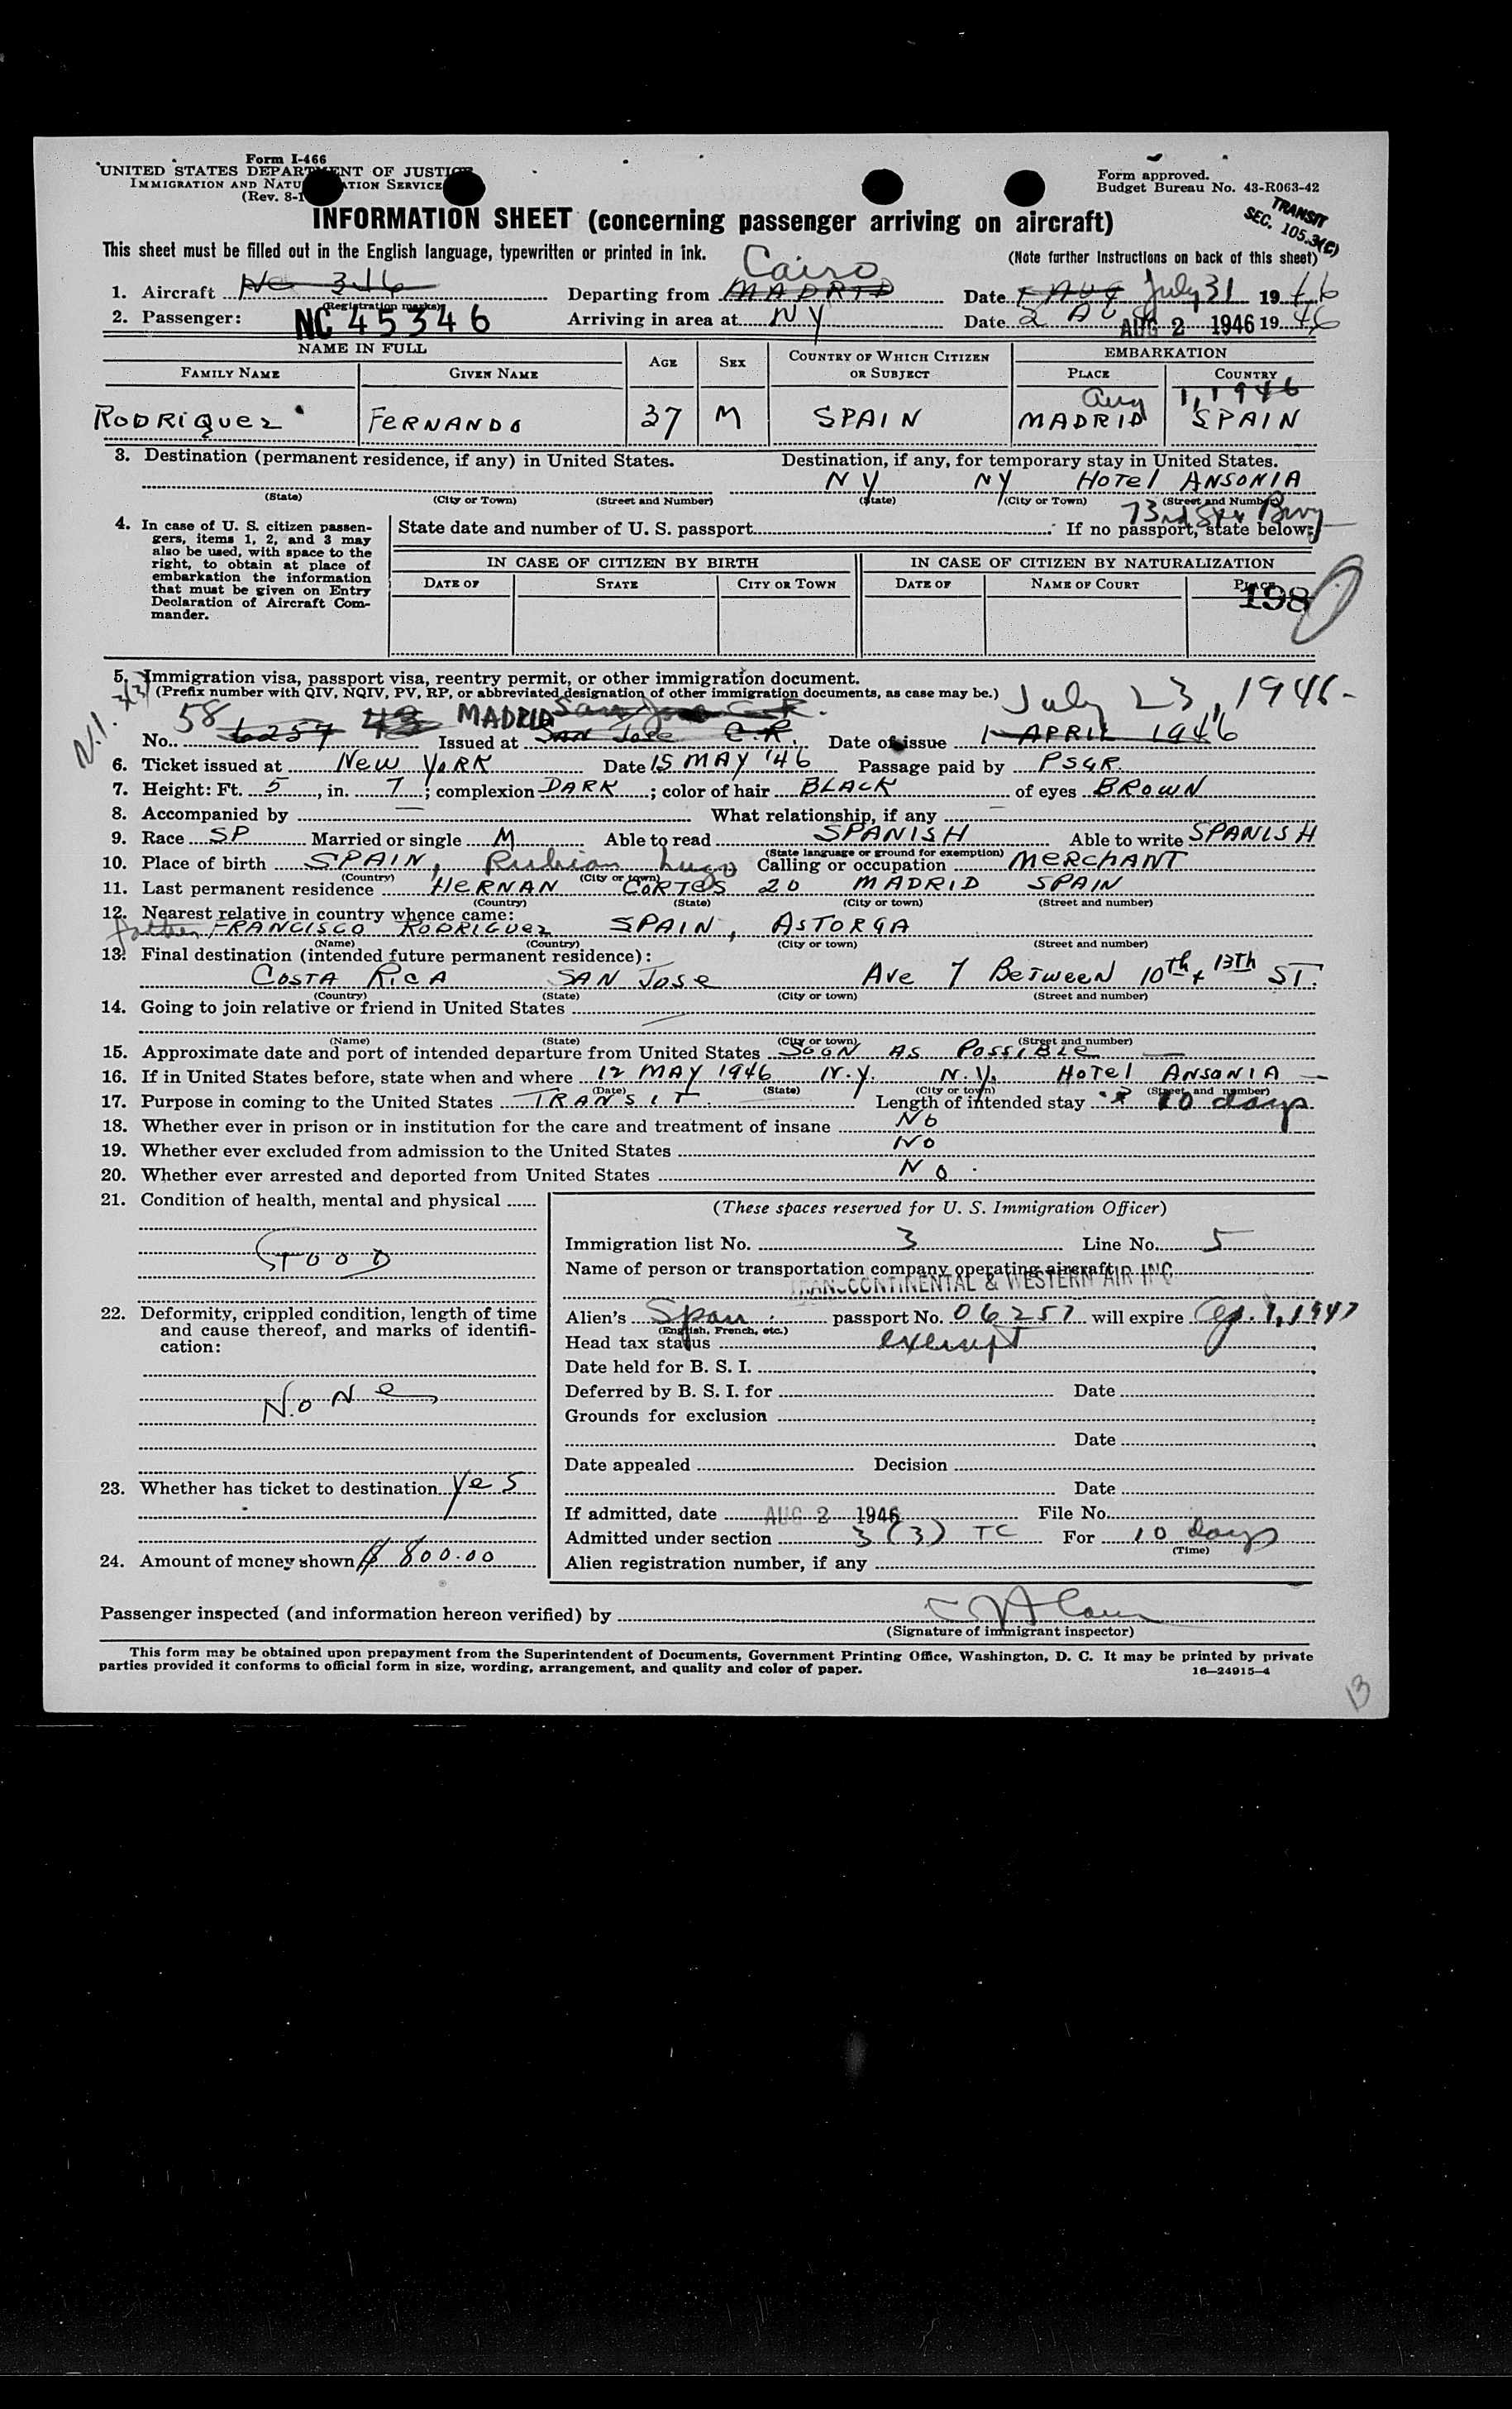 Form I-466
UNITED STATES DEPARTMENT OF JUSTICE
IMMIGRATION AND NATU ATION SERVICE
(Rev. 8-1
Form approved.
Budget Bureau No. 43-R063-42
TRANSIT
SEC. 105.3(C)
INFORMATION SHEET (concerning passenger arriving on aircraft)
This sheet must be filled out in the English language, typewritten or printed in ink.
(Note further instructions on back of this sheet)
Cairo
1. Aircraft NC 346 Departing from MADRID Date 1 AUG July 31 19 46
(Registration marks)
2. Passenger: NC 45346 Arriving in area at NY Date 2 AUG 2 1946 19 46
NAME IN FULL AGE SEX COUNTRY OF WHICH CITIZEN OR SUBJECT EMBARKATION
FAMILY NAME GIVEN NAME PLACE COUNTRY
Aug 1, 1946
RODRIGUEZ FERNANDO 37 M SPAIN MADRID SPAIN
3. Destination (permanent residence, if any) in United States. Destination, if any, for temporary stay in United States.
NY NY HOTEL ANSONIA
(State) (City or Town) (Street and Number) (State) (City or Town) (Street and Number)
73rd
4. In case of U. S. citizen passengers, items 1, 2, and 3 may also be used, with space to the right, to obtain at place of embarkation the information that must be given on Entry Declaration of Aircraft Commander.
State date and number of U. S. passport If no passport, state below:
IN CASE OF CITIZEN BY BIRTH IN CASE OF CITIZEN BY NATURALIZATION
DATE OF STATE CITY OR TOWN DATE OF NAME OF COURT PLACE
198
5. Immigration visa, passport visa, reentry permit, or other immigration document.
(Prefix number with QIV, NQIV, PV, RP, or abbreviated designation of other immigration documents, as case may be.)
N.I. 3(3) 58 43 MADRID San Jose C.R. July 23, 1946
No. 6257 Issued at SAN JOSE C.R. Date of issue 1 APRIL 1946
6. Ticket issued at NEW YORK Date 15 MAY '46 Passage paid by PSGR.
7. Height: Ft. 5, in. 7; complexion DARK; color of hair BLACK of eyes BROWN
8. Accompanied by — What relationship, if any —
9. Race SP Married or single M Able to read SPANISH Able to write SPANISH
(State language or ground for exemption)
10. Place of birth SPAIN, Lugo Calling or occupation MERCHANT
(Country) (City or town)
11. Last permanent residence HERNAN CORTES 20 MADRID SPAIN
(Country) (State) (City or town) (Street and number)
12. Nearest relative in country whence came:
father FRANCISCO RODRIGUEZ SPAIN, ASTORGA
(Name) (Country) (City or town) (Street and number)
13. Final destination (intended future permanent residence):
COSTA RICA SAN JOSE AVE 7 BETWEEN 10th + 13th ST.
(Country) (State) (City or town) (Street and number)
14. Going to join relative or friend in United States
(Name) (State) (City or town) (Street and number)
15. Approximate date and port of intended departure from United States SOON AS POSSIBLE —
16. If in United States before, state when and where 12 MAY 1946 N.Y. N.Y. HOTEL ANSONIA —
(Date) (State) (City or town) (Street and number)
17. Purpose in coming to the United States TRANSIT. Length of intended stay 10 days
18. Whether ever in prison or in institution for the care and treatment of insane NO
19. Whether ever excluded from admission to the United States NO
20. Whether ever arrested and deported from United States NO.
21. Condition of health, mental and physical
GOOD
22. Deformity, crippled condition, length of time and cause thereof, and marks of identification:
NONE
23. Whether has ticket to destination Yes
24. Amount of money shown $ 800.00
(These spaces reserved for U. S. Immigration Officer)
Immigration list No. 3 Line No. 5
Name of person or transportation company operating aircraft
TRANSCONTINENTAL & WESTERN AIR INC
Alien's Span. passport No. 06257 will expire Ap. 1, 1947
(English, French, etc.)
Head tax status exempt
Date held for B. S. I.
Deferred by B. S. I. for Date
Grounds for exclusion
Date
Date appealed Decision
Date
If admitted, date AUG 2 1946 File No.
Admitted under section 3(3) TC For 10 days
(Time)
Alien registration number, if any
Passenger inspected (and information hereon verified) by
(Signature of immigrant inspector)
This form may be obtained upon prepayment from the Superintendent of Documents, Government Printing Office, Washington, D. C. It may be printed by private
parties provided it conforms to official form in size, wording, arrangement, and quality and color of paper.
16—24915-4
B